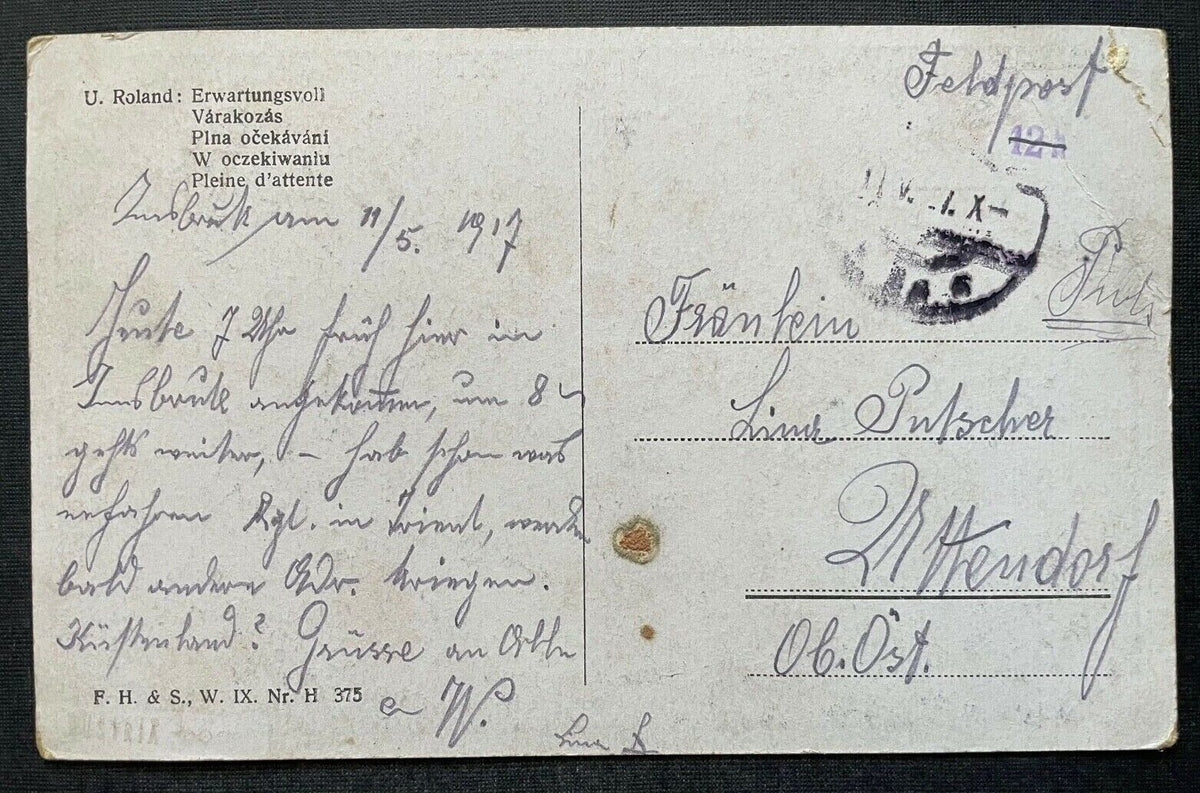 U. Roland: Erwartungsvoll
Várakozás
Plna očekávání
W oczekiwaniu
Pleine d'attente
Innsbruk am 11/5. 1917
Heute 7 Uhr früh hier in
Innsbruk angekommen, um 8
gehts weiter, – hab schon was
erfahren Rgt. in Trient, werde
bald andere Adr. kriegen.
Küstenland? Grüsse an Alle
W.
F. H. & S., W. IX. Nr. H 375
Feldpost
12
Fräulein
Lina Putscher
Uttendorf
Ob. Öst.
Lina